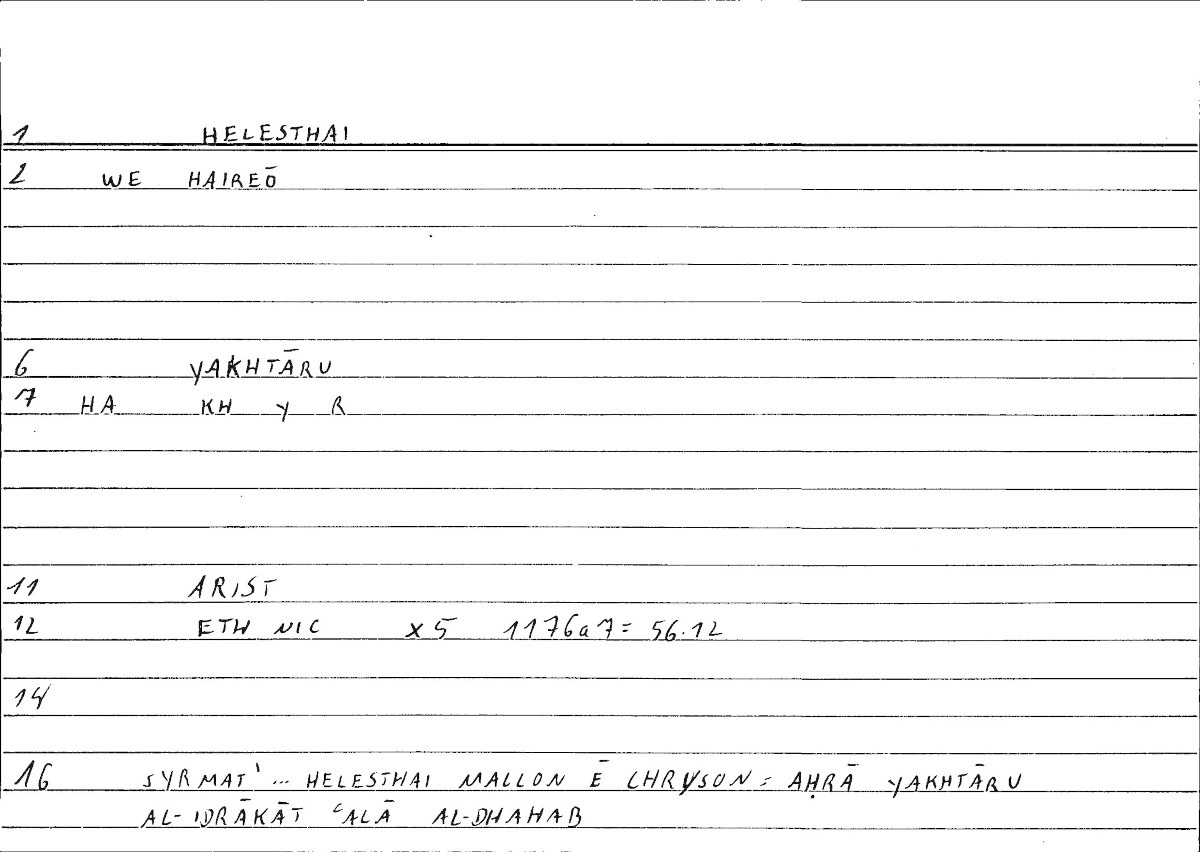 1 HELESTHAI
2 WE HAIREŌ
6 YAKHTĀRU
7 HA KH Y R
11 ARIST
12 ETH NIC X5 1176a7= 56.12
14
16 SYRMAT' ... HELESTHAI MALLON Ē CHRYSON = AḤRĀ YAKHTĀRU
AL-IDRĀKĀT ʿALĀ AL-DHAHAB